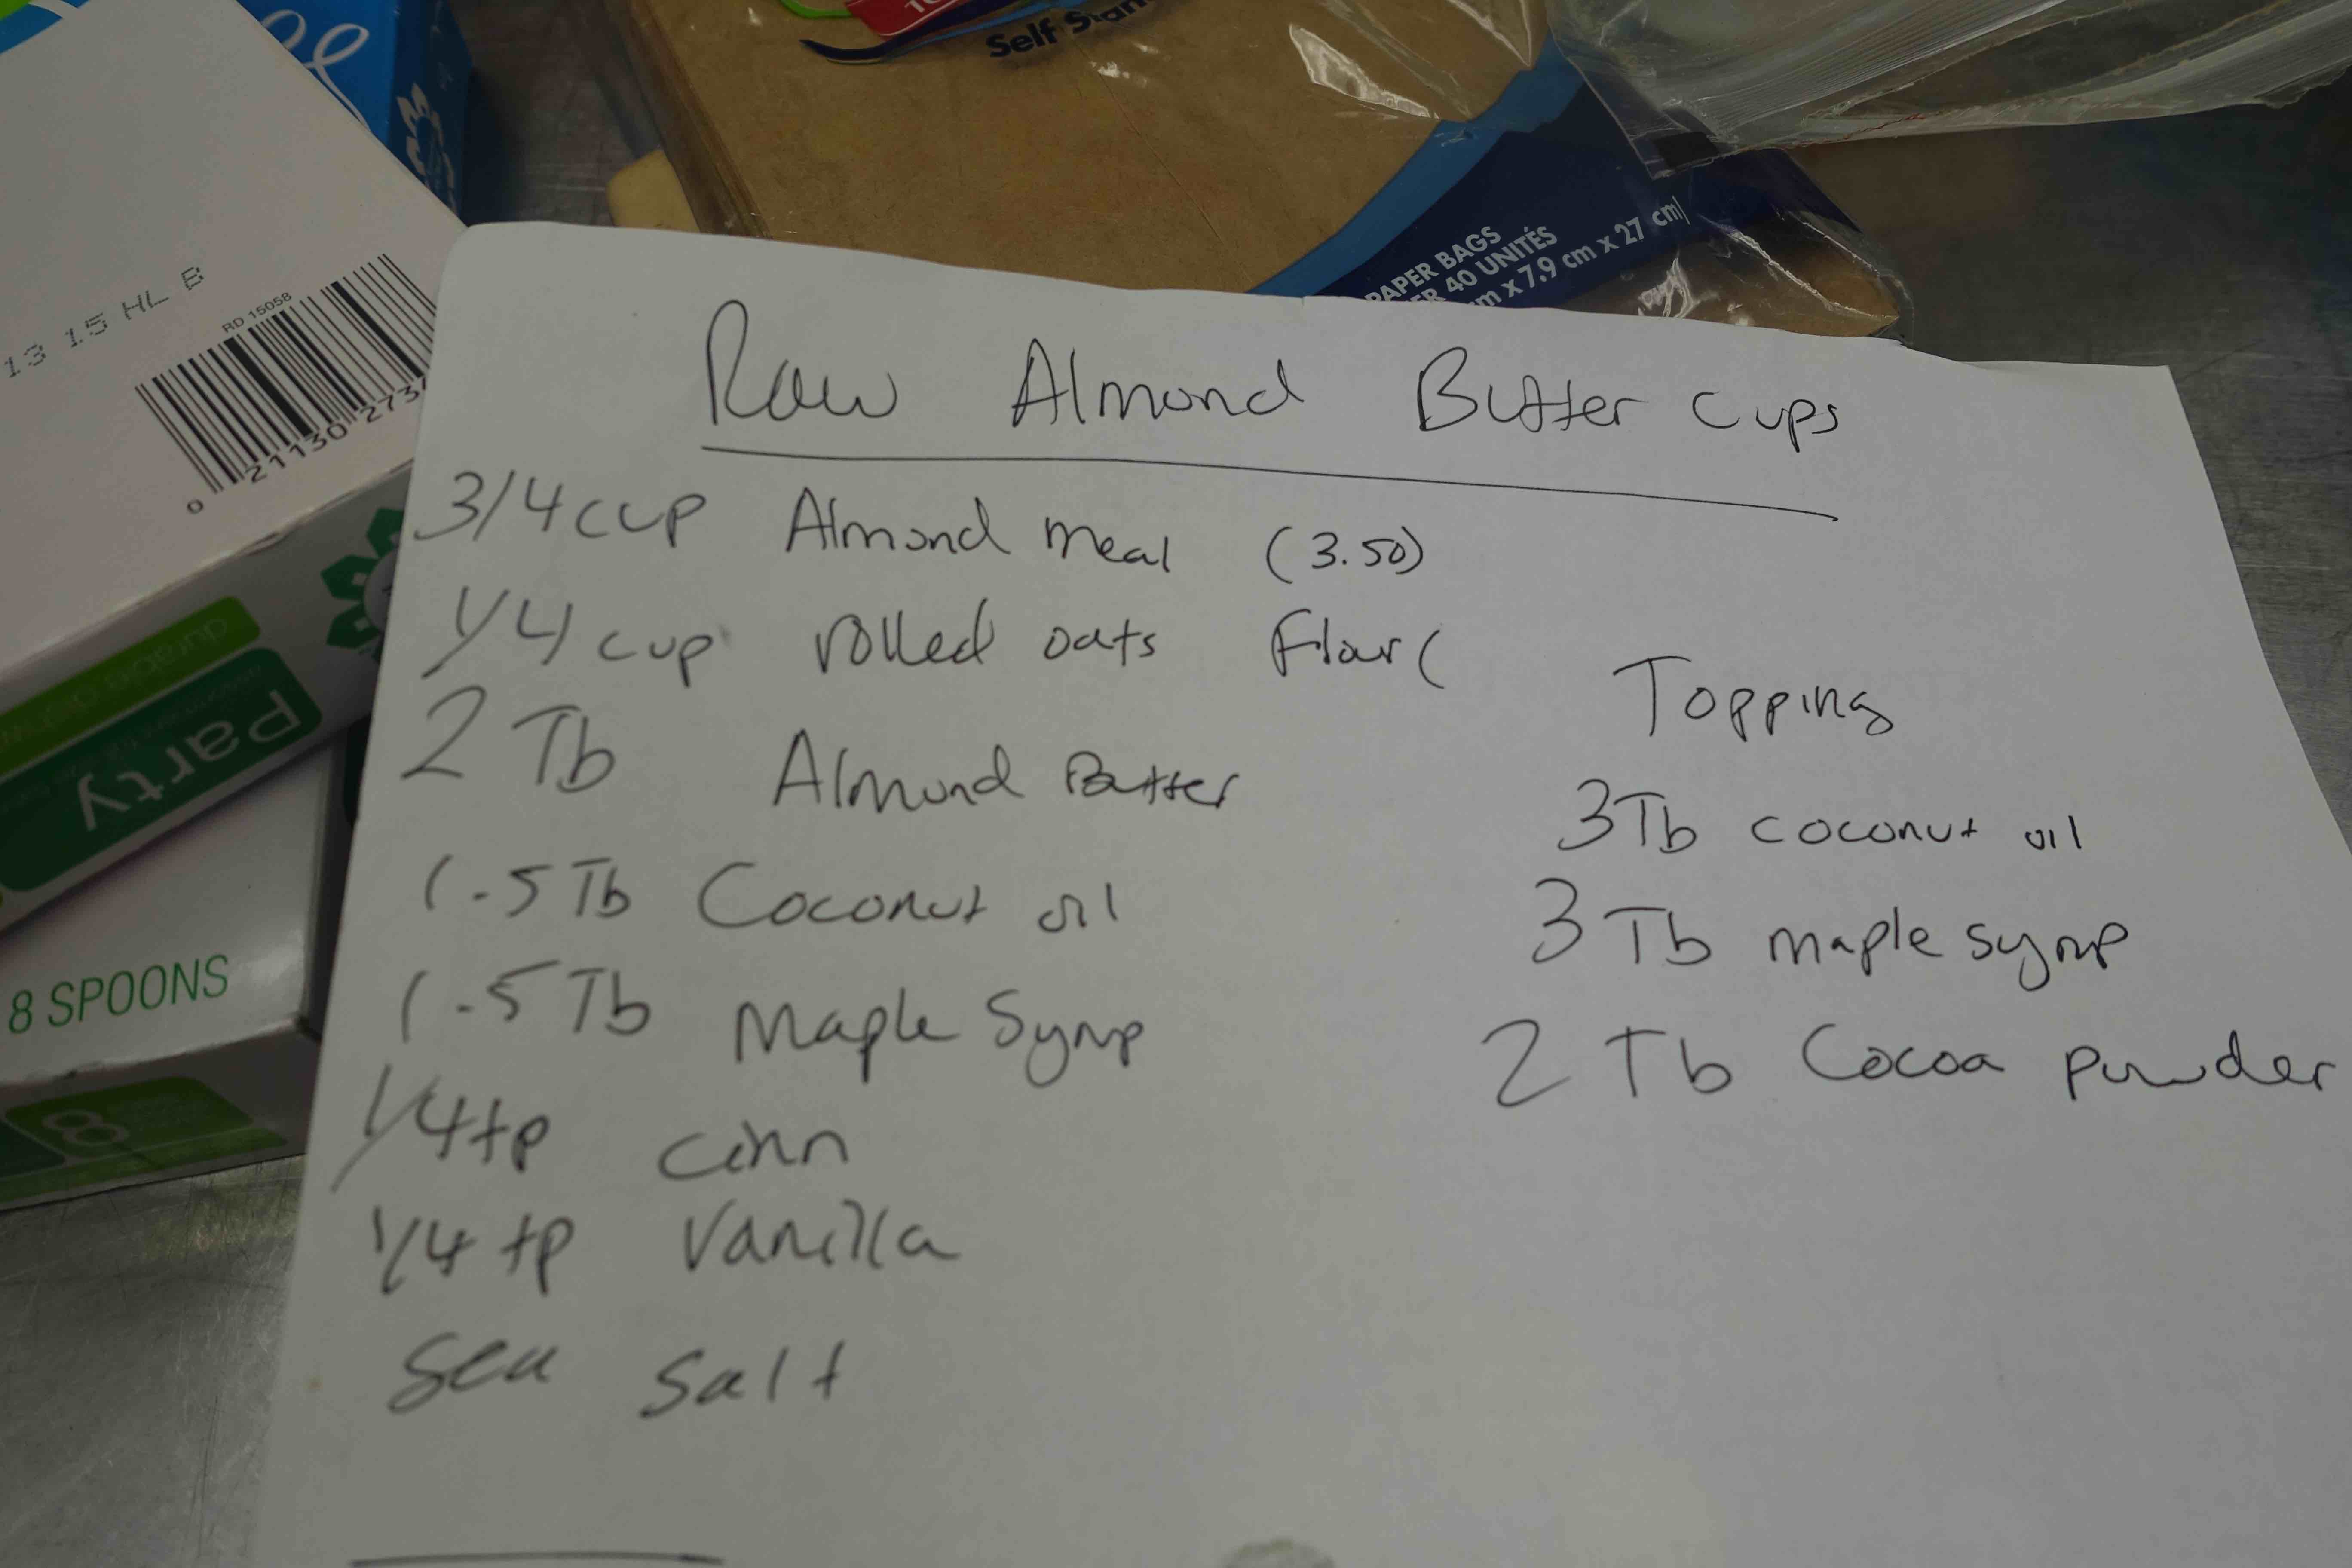 Self Stan
PAPER BAGS
ER 40 UNITÉS
m x 7.9 cm x 27 cm
13 15 HL B
RD 15058
0 21130 273
Party
8 SPOONS
8
Raw Almond Butter Cups
3/4 cup Almond meal (3.50)
1/4 cup rolled oats flour (
2 Tb Almond Butter
1.5 Tb Coconut oil
1.5 Tb Maple Syrup
1/4 tp cinn
1/4 tp Vanilla
Sea Salt
Topping
3 Tb coconut oil
3 Tb maple syrup
2 Tb Cocoa powder